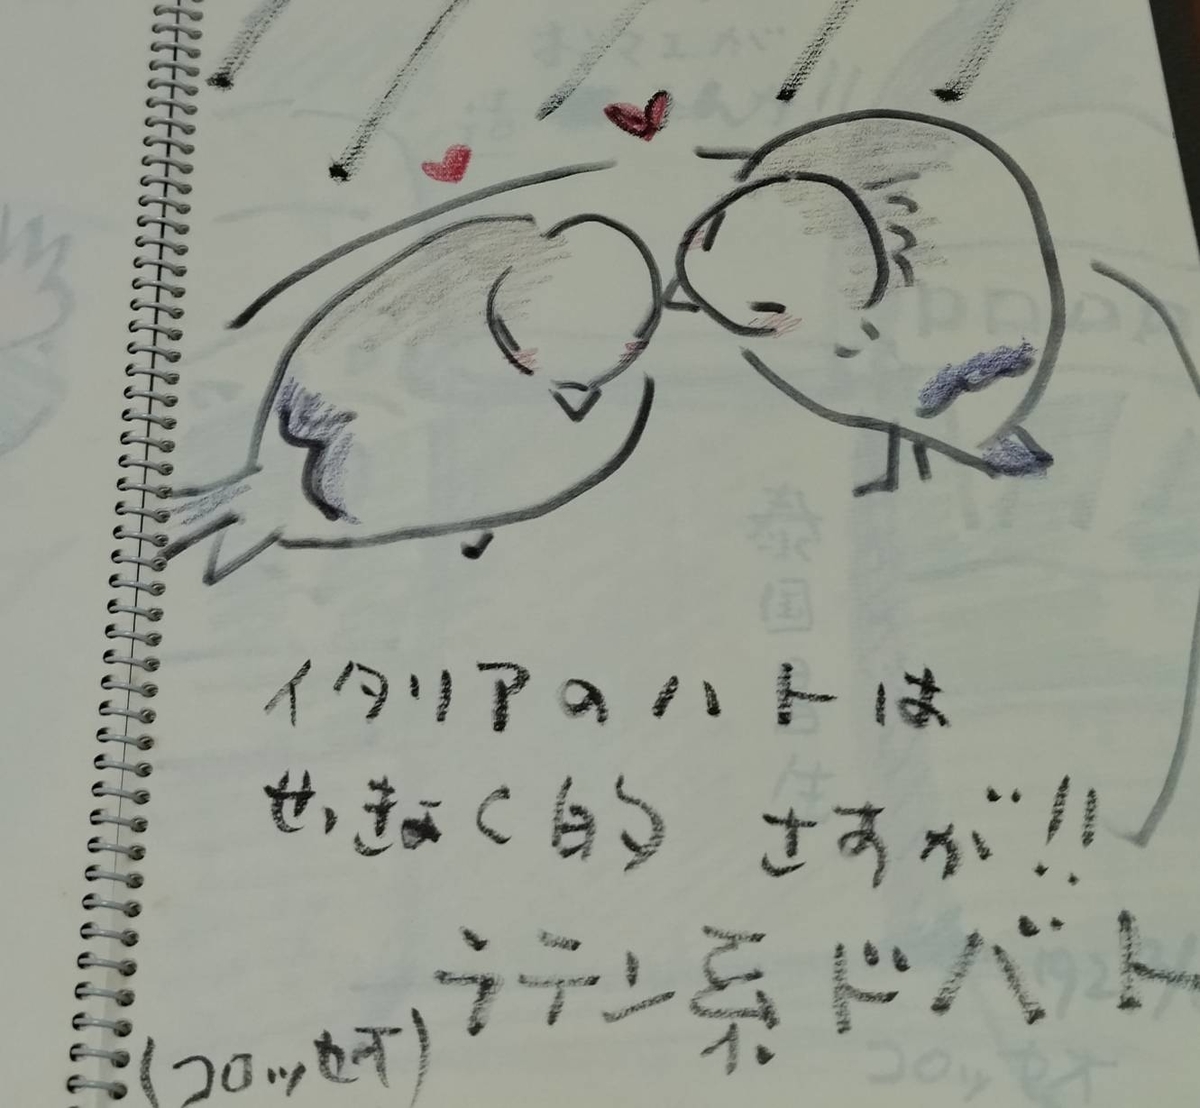 イタリアのハトは
せっきょく的 さすが!!
ラテン系ドバト
(コロッセオ)